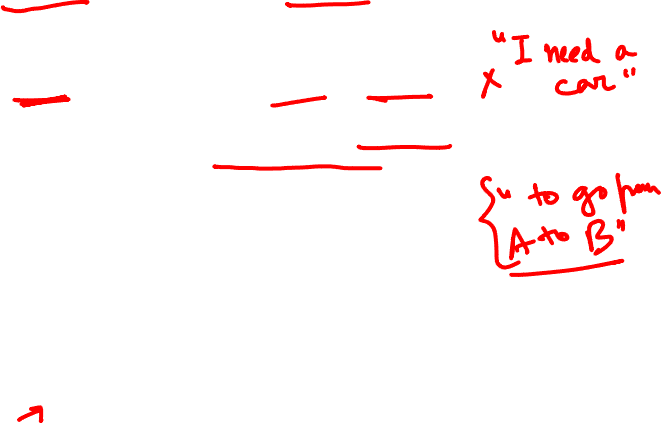 "I need a
x car"
" to go from
A to B"